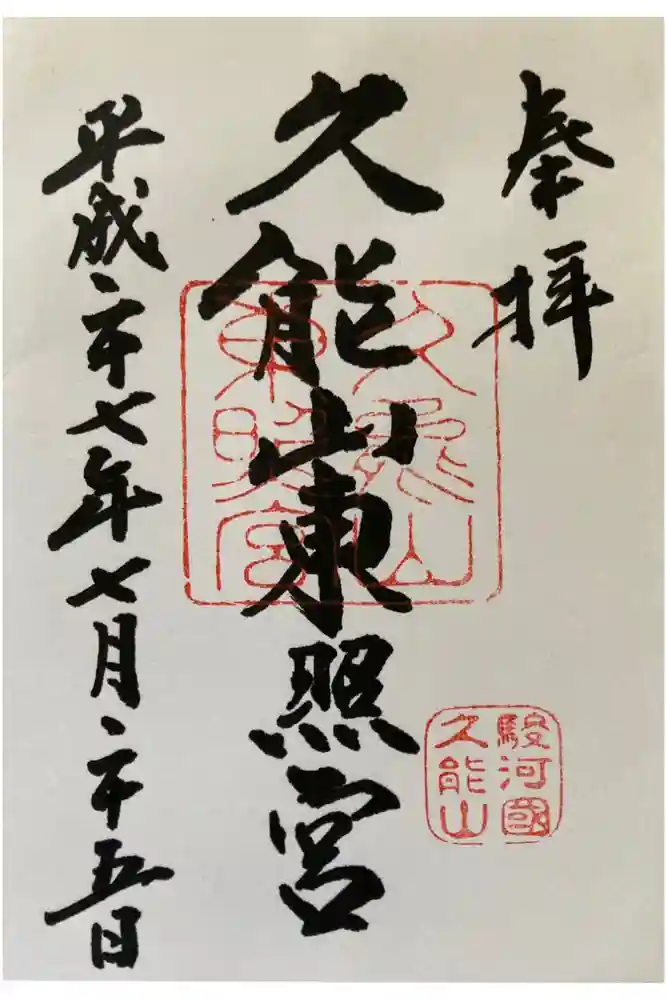 奉拝
久能山東照宮
平成二十七年七月二十五日
久能山
東照宮
駿河國
久能山